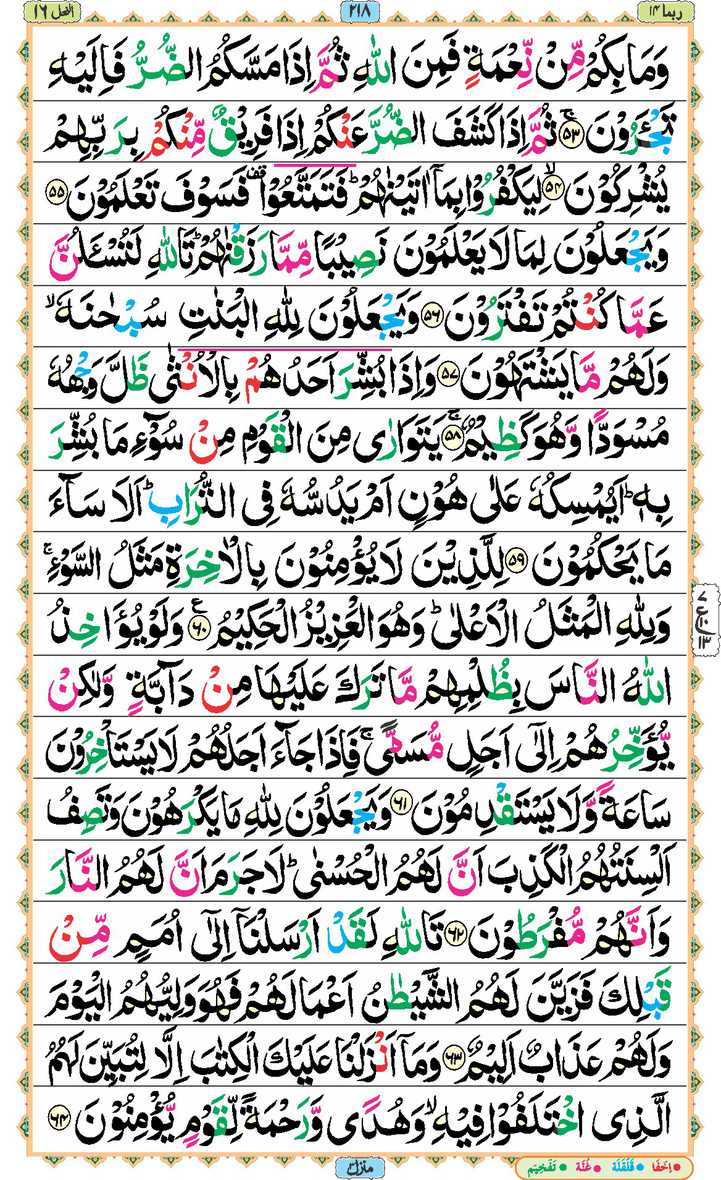 ربما ١٤ ٢١٨ النحل ١٦
وَمَا بِكُمْ مِّنْ نِّعْمَةٍ فَمِنَ اللّٰهِ ثُمَّ اِذَا مَسَّكُمُ الضُّرُّ فَاِلَيْهِ
تَجْـَٔرُوْنَ ۚ‏﴿۵۳﴾ ثُمَّ اِذَا كَشَفَ الضُّرَّ عَنْكُمْ اِذَا فَرِيْقٌ مِّنْكُمْ بِرَبِّهِمْ
يُشْرِكُوْنَ ۙ‏﴿۵۴﴾ لِيَكْفُرُوْا بِمَاۤ اٰتَيْنٰهُمْ‌ؕ فَتَمَتَّعُوْا فَسَوْفَ تَعْلَمُوْنَ ﴿۵۵﴾
وَيَجْعَلُوْنَ لِمَا لَا يَعْلَمُوْنَ نَصِيْبًا مِّمَّا رَزَقْنٰهُمْ‌ؕ تَاللّٰهِ لَتُسْـَٔلُنَّ
عَمَّا كُنْتُمْ تَفْتَرُوْنَ ﴿۵۶﴾ وَيَجْعَلُوْنَ لِلّٰهِ الْبَنٰتِ سُبْحٰنَهٗ‌ۙ
وَلَهُمْ مَّا يَشْتَهُوْنَ ﴿۵۷﴾ وَاِذَا بُشِّرَ اَحَدُهُمْ بِالْاُنْثٰى ظَلَّ وَجْهُهٗ
مُسْوَدًّا وَّهُوَ كَظِيْمٌ‌ۚ ﴿۵۸﴾ يَتَوَارٰى مِنَ الْقَوْمِ مِنْ سُوْٓءِ مَا بُشِّرَ
بِهٖؕ اَيُمْسِكُهٗ عَلٰى هُوْنٍ اَمْ يَدُسُّهٗ فِى التُّرَابِ‌ؕ اَلَا سَآءَ
مَا يَحْكُمُوْنَ ﴿۵۹﴾ لِلَّذِيْنَ لَا يُؤْمِنُوْنَ بِالْاٰخِرَةِ مَثَلُ السَّوْءِ‌ۚ
وَلِلّٰهِ الْمَثَلُ الْاَعْلٰى‌ؕ وَهُوَ الْعَزِيْزُ الْحَكِيْمُ ﴿۶۰﴾ وَلَوْ يُؤَاخِذُ
اللّٰهُ النَّاسَ بِظُلْمِهِمْ مَّا تَرَكَ عَلَيْهَا مِنْ دَآبَّةٍ وَّلٰكِنْ
يُّؤَخِّرُهُمْ اِلٰٓى اَجَلٍ مُّسَمًّى‌ۚ فَاِذَا جَآءَ اَجَلُهُمْ لَا يَسْتَاْخِرُوْنَ
سَاعَةً‌ وَّلَا يَسْتَقْدِمُوْنَ ﴿۶۱﴾ وَيَجْعَلُوْنَ لِلّٰهِ مَا يَكْرَهُوْنَ وَتَصِفُ
اَلْسِنَتُهُمُ الْكَذِبَ اَنَّ لَهُمُ الْحُسْنٰى‌ؕ لَا جَرَمَ اَنَّ لَهُمُ النَّارَ
وَاَنَّهُمْ مُّفْرَطُوْنَ ﴿۶۲﴾ تَاللّٰهِ لَقَدْ اَرْسَلْنَاۤ اِلٰٓى اُمَمٍ مِّنْ
قَبْلِكَ فَزَيَّنَ لَهُمُ الشَّيْطٰنُ اَعْمَالَهُمْ فَهُوَ وَلِيُّهُمُ الْيَوْمَ
وَلَهُمْ عَذَابٌ اَلِيْمٌ ﴿۶۳﴾ وَمَاۤ اَنْزَلْنَا عَلَيْكَ الْكِتٰبَ اِلَّا لِتُبَيِّنَ لَهُمُ
الَّذِى اخْتَلَفُوْا فِيْهِۙ وَهُدًى وَّرَحْمَةً لِّقَوْمٍ يُّؤْمِنُوْنَ ﴿۶۴﴾
٧ ع ١٣
منزل ٣
اِخفَا قَلْقَلَة غُنَّة تَفْخِيْم